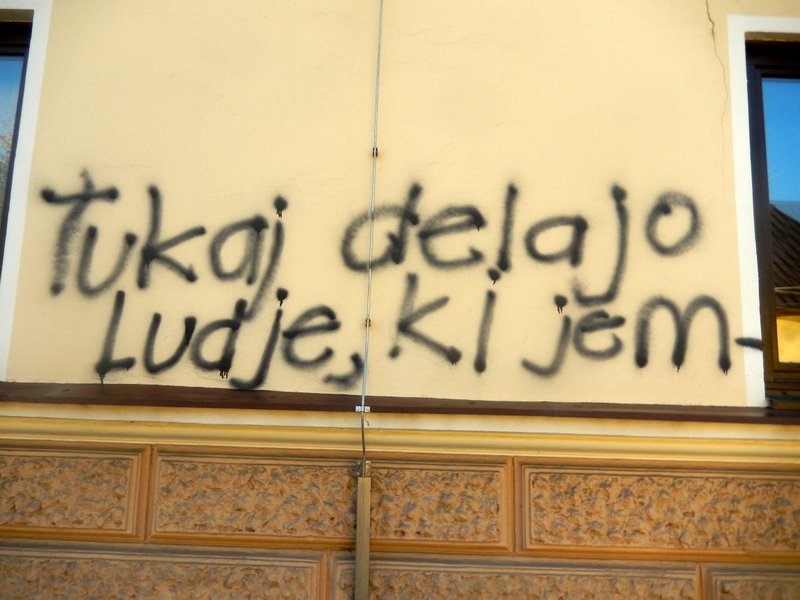 Tukaj delajo
Ludje, ki jem-